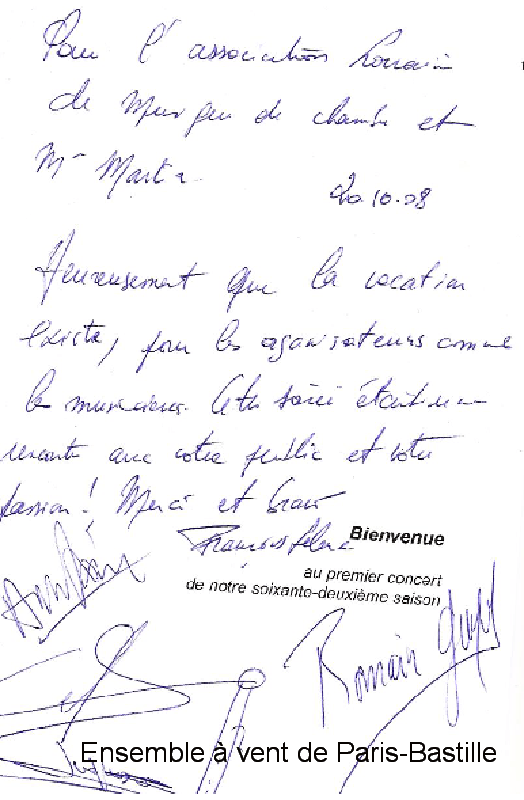 Pour l'association Lorraine
de Musique de chambre et
Mme Martin
20.10.08
Heureusement que la vocation
existe, pour les organisateurs comme
les musiciens. Cette soirée était une
rencontre avec votre public et votre
passion! Merci et bravo
François
Bienvenue
au premier concert
de notre soixante-deuxième saison
Romain Guyot
Ensemble à vent de Paris-Bastille